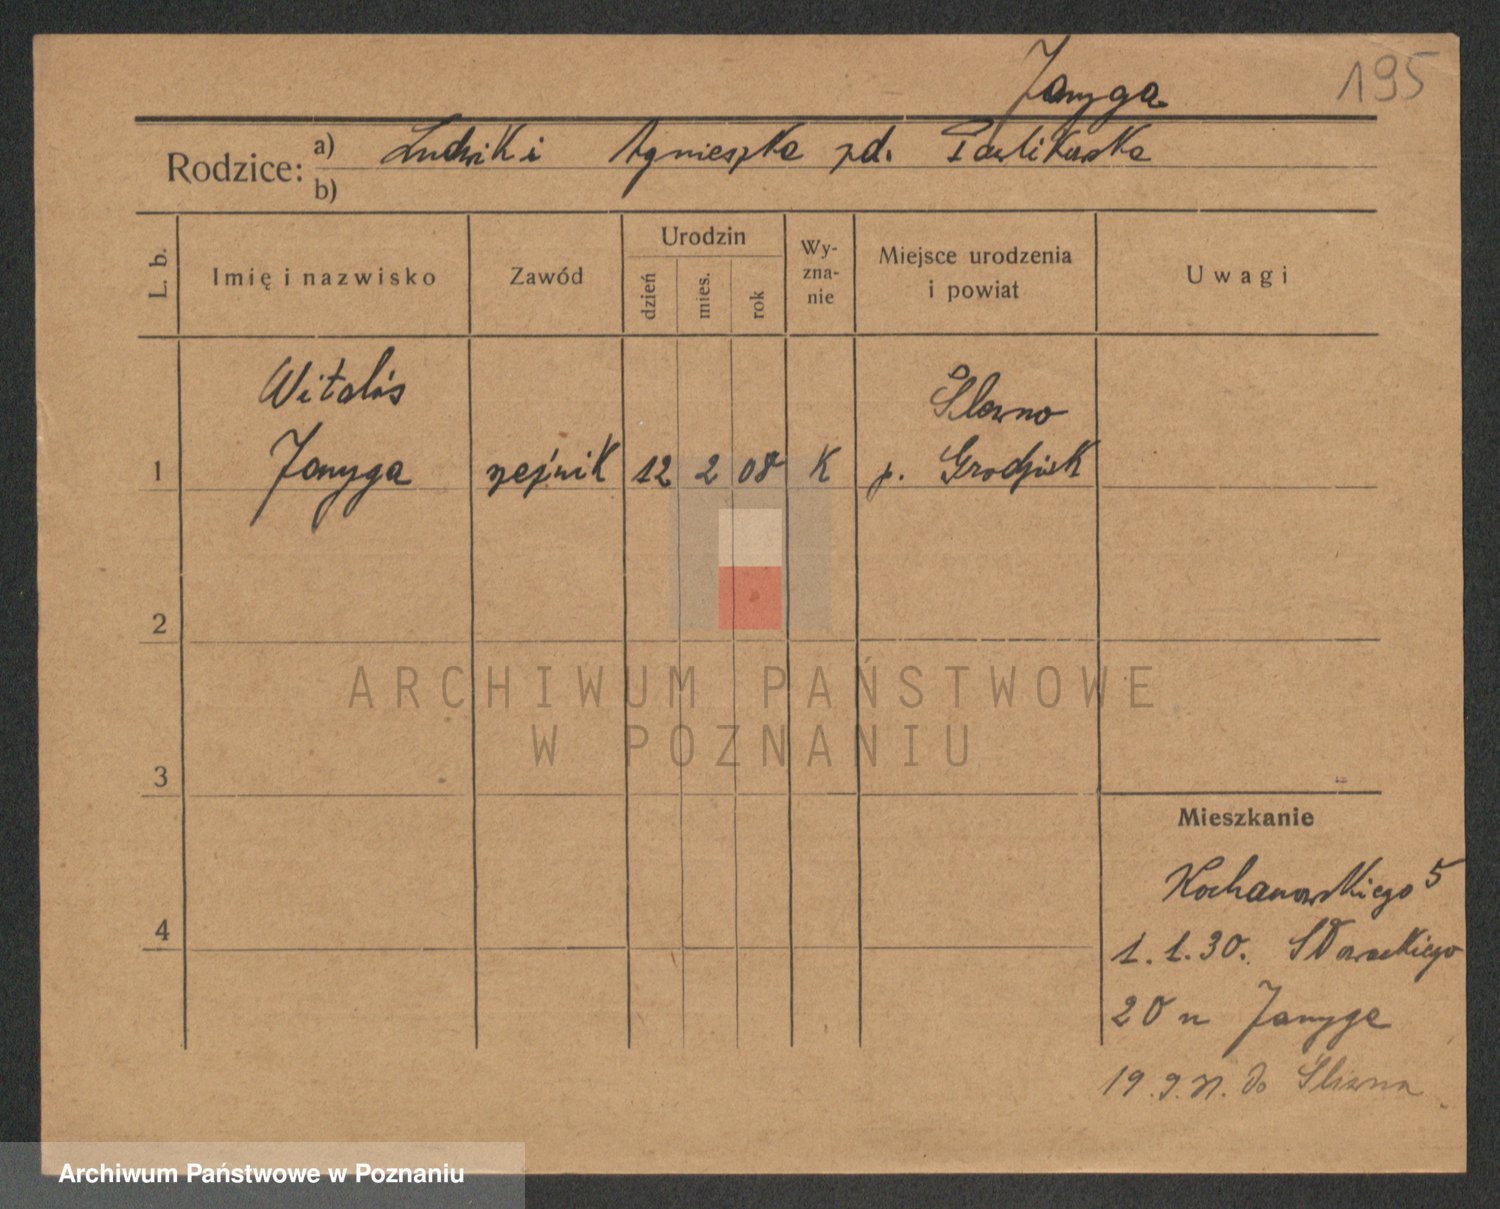 Janyga
195
Rodzice: a) Ludwik i Agnieszka zd. Pawlikowska
b)
L. b.
Imię i nazwisko
Zawód
Urodzin
dzień
mies.
rok
Wy-
zna-
nie
Miejsce urodzenia
i powiat
Uwagi
Witalis
1 Janyga rzeźnik 12 2 08 K
Sławno
p. Grodzisk
2
3
4
ARCHIWUM PAŃSTWOWE
W POZNANIU
Mieszkanie
Kochanowskiego 5
1.1.30. Słowackiego
20 n Janyga
19.9. do
Archiwum Państwowe w Poznaniu